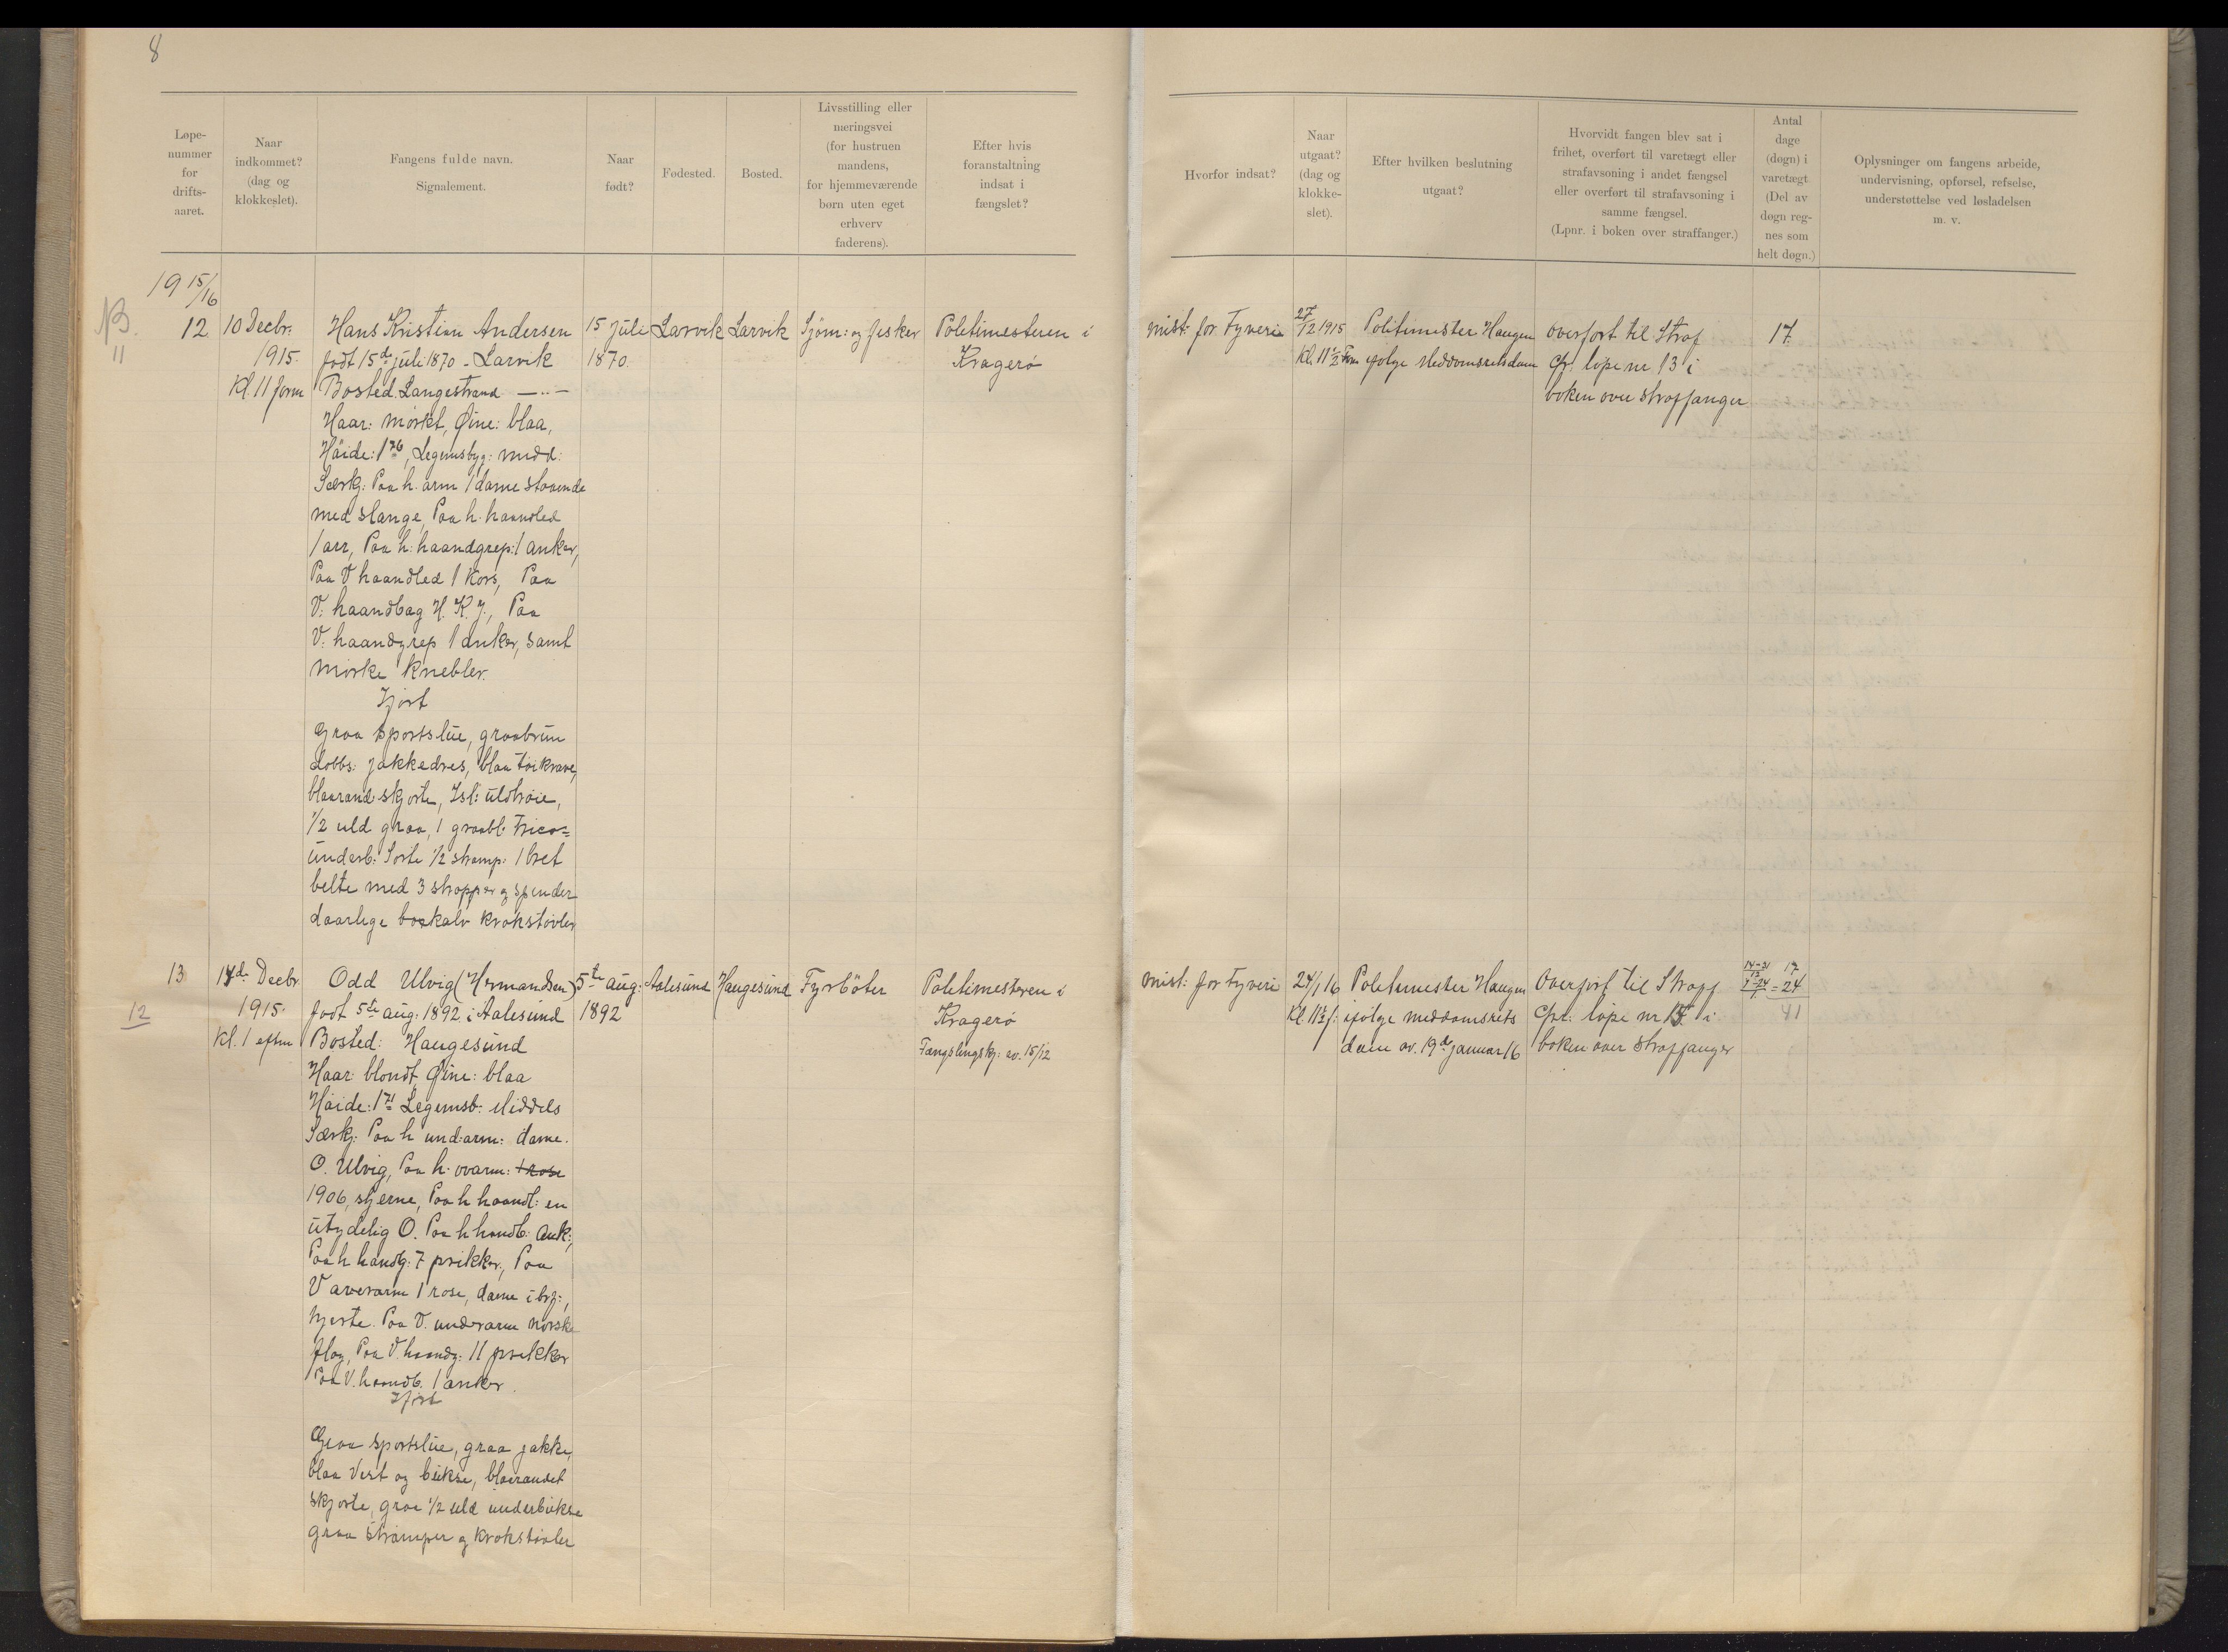 8
Løpe-
nummer
for
drifts-
aaret.
Naar
indkommet?
(dag og
klokkeslet).
Fangens fulde navn.
Signalement.
Naar
født?
Fødested.
Bosted.
Livsstilling eller
næringsvei
(for hustruen
mandens,
for hjemmeværende
børn uten eget
erhverv
faderens).
Efter hvis
foranstaltning
indsat i
fængslet?
Hvorfor indsat?
Naar
utgaat?
(dag og
klokke-
slet).
Efter hvilken beslutning
utgaat?
Hvorvidt fangen blev sat i
frihet, overført til varetægt eller
strafavsoning i andet fængsel
eller overført til strafavsoning i
samme fængsel.
(Lpnr. i boken over straffanger.)
Antal
dage
(døgn) i
varetægt
(Del av
døgn reg-
nes som
helt døgn.)
Oplysninger om fangens arbeide,
undervisning, opførsel, refselse,
understøttelse ved løsladelsen
m. v.
19 15/16
11
12
10 Decbr:
1915.
Kl. 11 form
Hans Kristian Andersen
født 15de juli 1870 - Larvik
Bosted. Langestrand —..—
Haar: mørkt, Øine: blaa,
Høide: 1 76, Legemsbyg: midd:
Særk: Paa h. arm 1 dame staaende
med slange, Paa h. haandled
1 arr, Paa h: haandgrep: 1 anker,
Paa V haandled 1 kors, Paa
V: haandbag H. K. J., Paa
V: haandgrep 1 anker, samt
mørke knebler.
Ifört
Graa sportslue, graabrun
dobbs: jakkedres, blaa tøikrave,
blaarand: skjorte, Isl: uldtrøie,
1/2 uld graa, 1 graabl. Trico=
underb: Sorte 1/2 strømp: 1 bret
belte med 3 stropper og spender
daarlige boxkalv krokstøvler
15 juli
1870.
Larvik
Larvik
Sjøm: og fisker
Politimesteren i
Kragerø
mist: for Tyveri
27/12 1915
Kl. 11 1/2 Fm
Politimester Haugen
ifølge Meddomsretsdom
overført til Straf
Cfr: løpe nr. 13 i
boken over straffanger
17.
13
12
14de Decbr
1915.
Kl. 1 eftm
Odd Ulvig (Hermandsen)
født 5te aug: 1892 i Aalesund
Bosted: Haugesund
Haar: blondt, Øine: blaa
Høide: 1 71 Legemsb: Middels
Særk: Paa h und:arm: dame.
O. Ulvig, Paa h. ovarm: 1 rose
1906, stjerne, Paa h haandl: en
utydelig O. Paa h handb: Ank:,
Paa h. handg: 7 prikker, Paa
V averarm 1 rose, dame i brg:,
hjerte. Paa V. underarm norske
flag, Paa V. haandg: 11 prikker
Paa V. haandb. 1 anker.
Ifört
Graa sportslue, graa jakke,
blaa Vest og bukse, blaarandet
skjorte, graa 1/2 uld underbukse
graa strømper og krokstøvler
5te aug:
1892
Aalesund
Haugesund
Fyrbøter
Politimesteren i
Kragerø
Fængslingskj: av. 15/12
mist: for Tyveri
24/1 16
Kl. 11 1/2 f:
Politimester Haugen
ifølge meddomsrets
dom av. 19de januar 16
Overført til Straff
Cfr: løpe nr 15 i
boken over straffanger
14-31/12 17
1-24/1 = 24
41